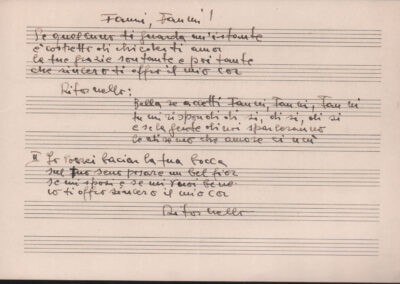 Fanni, Fanni!
Se qualcuno ti guarda un'istante
è costretto di chiederti amor
le tue grazie son tante e poi tante
che sincero ti offro il mio cor
Ritornello:
Bella se accetti Fanni, Fanni, Fanni
tu mi rispondi di si, di si, di si
e se la gente di noi sparleranno
le diremo che amore ci unì
II Io vorrei baciar la tua bocca
sul tuo seno posare un bel fior
se mi sposi e se mi vuoi bene
io ti offro sincero il mio cor
Ritornello